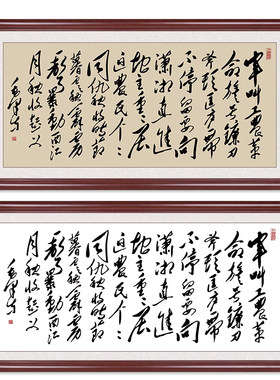 军叫工農革
命旗号镰刀
斧头匡庐一带
不停留要向
潇湘直進
地主重重压
迫農民个个
同仇秋收时节
暮云愁霹雳
一声暴動西江
月秋收起义
毛泽东
军叫工農革
命旗号镰刀
斧头匡庐一带
不停留要向
潇湘直進
地主重重压
迫農民个个
同仇秋收时节
暮云愁霹雳
一声暴動西江
月秋收起义
毛泽东